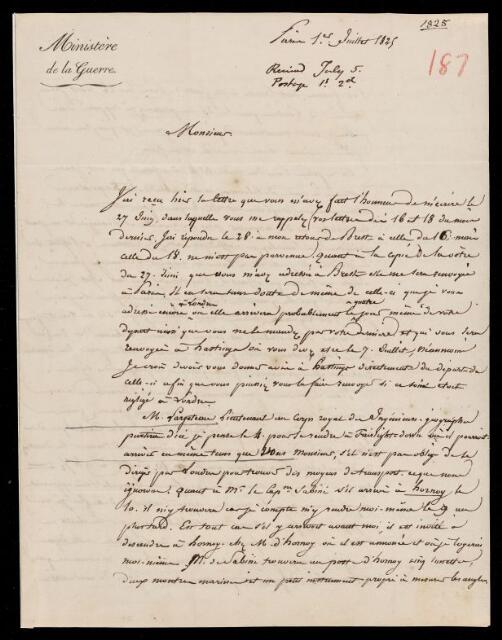 1825
Ministère
de la Guerre.
Paris 1er Juillet 1825
187
Received July 5.
Postage 1s 2d
Monsieur
J'ai reçu hier la lettre que vous m'avez fait l'honneur de m'écrire le
27 Juin, dans laquelle vous me rappelez vos lettres des 16 et 18 du mois
dernier. J'ai répondu le 28 à mon retour de Brest à celle du 16, mais
celle du 18 ne m'est pas parvenue, quant à la copie de la vôtre
du 27 Juin que vous m'avez adressée à Brest elle me sera renvoyée
à Paris. Il en sera sans doute de même de celle-ci que je vous
à Londres
adresse encore où elle arrivera probablement le jour même de votre
départ ainsi que vous me le mandez par votre dernière et qui vous sera
renvoyée à hastings où vous devez être le 7 Juillet, néanmoins
Je crois devoir vous donner avis à hastings directement du départ de
celle-ci afin que vous puissiez vous la faire renvoyer si ce soin était
négligé à Londres
M. Lieutenant au corps royal des Ingénieurs géographes
partira d'ici je pense le 4 pour se rendre à Fairlight-down où il pourrait
arriver en même tems que vous Monsieur, s'il n'est pas obligé de se
diriger par Londres pour trouver des moyens de transport, ce que nous
ignorons. Quant à Mr. le Capne Sabine s'il arrive à hornoy le
10. il m'y trouvera car je compte m'y rendre moi-même le 9 au
plus tard. En tout cas s'il y arrivoit avant moi, il est invité à
descendre à hornoy chez M. d'hornoy où il est annoncé et où je logerai
moi-même. M. de Sabine trouvera au poste d'hornoy
deux montres marines et un petit instrument propre à mesurer les angles